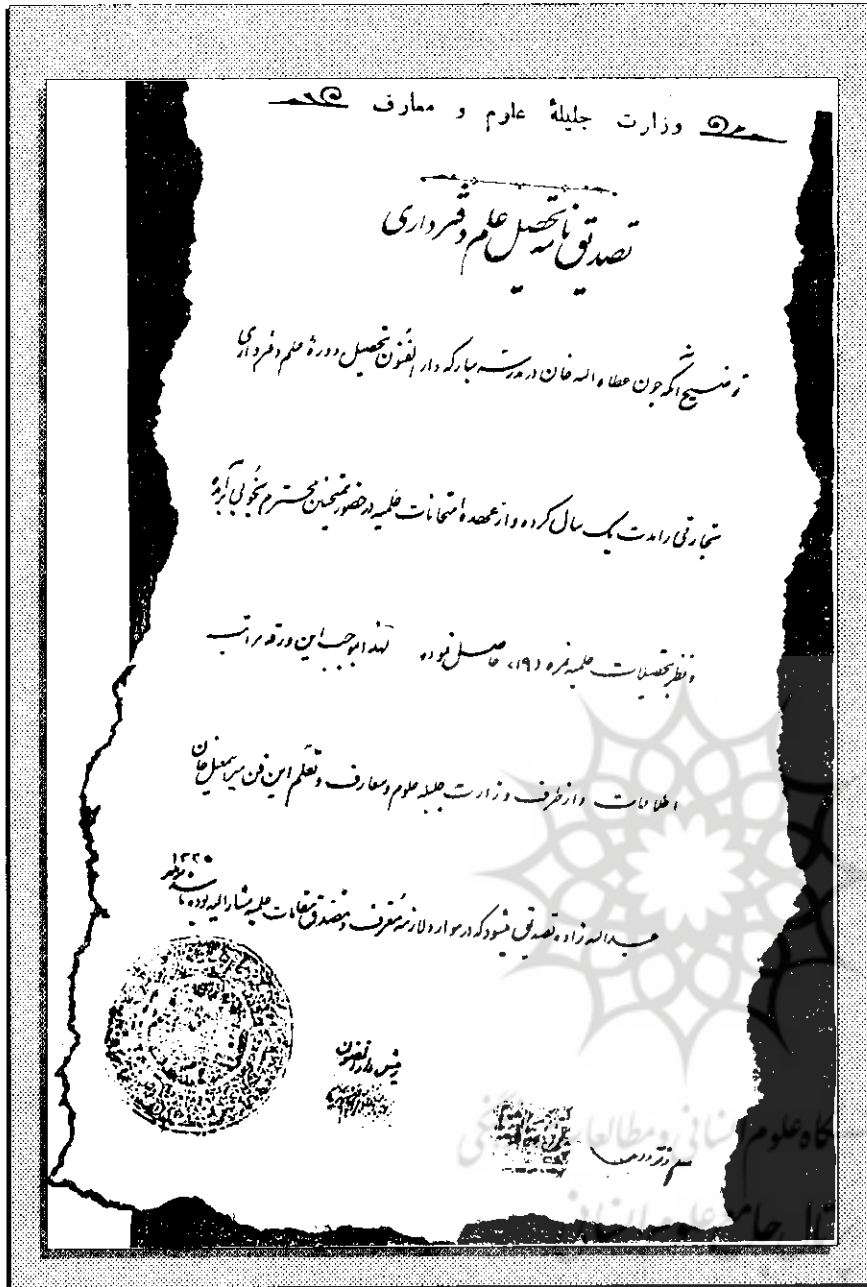 وزارت جلیلهٔ علوم و معارف
تصدیق نامه تحصیل علم دفترداری
توضیح آنکه چون عطاء اله خان در مدرسه مبارکه دارالفنون تحصیل دورهٔ علم دفترداری
تجارتی را مدت یک سال کرده و از عهده امتحانات علمیه در حضور ممتحنین محترم بخوبی برآمده
و نظر بتحصیلات علمیه نمره (۱۹) حاصل نموده لهذا بموجب این ورقه مراتب
اطلاعات و از طرف وزارت جلیله علوم و معارف و تعلم این فن میر اسمعیل خان
عبداله زاده تصدیق میشود که در موارد لازمه معرف و مصدق مقامات علمیه مشارالیه بوده باشد
۱۳۳۵
رئیس دارالفنون
معلم دفترداری
گاه علوم انسانی و مطالعات فرهنگی
تال جامع علوم انسانی